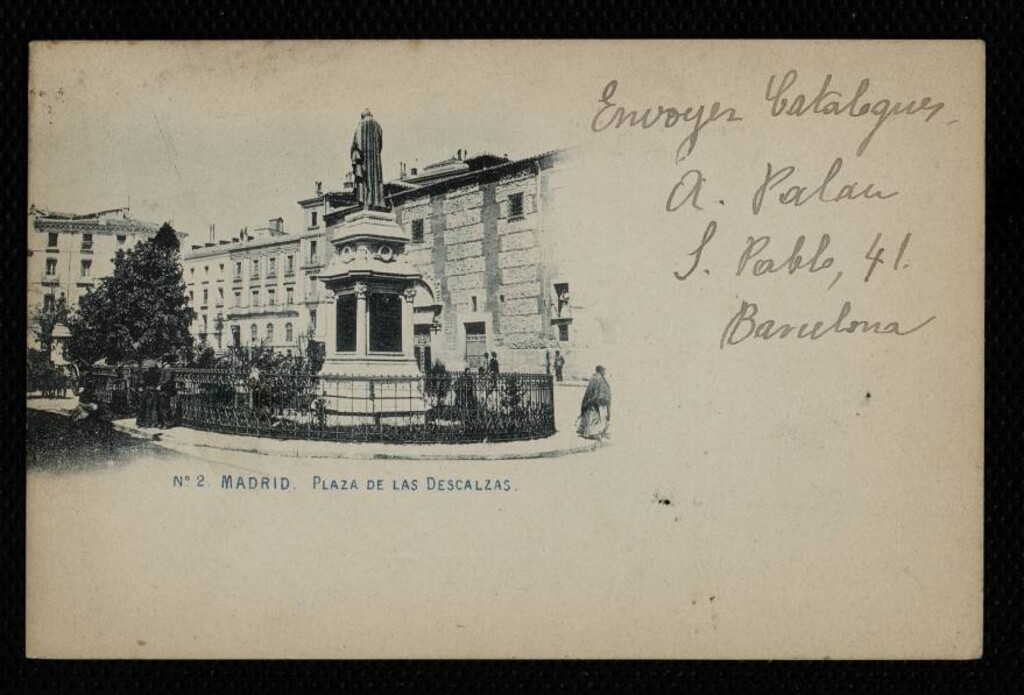 Envoyez Catalogues.
A. Palau
S. Pablo, 41.
Barcelona
Nº 2. MADRID. PLAZA DE LAS DESCALZAS.